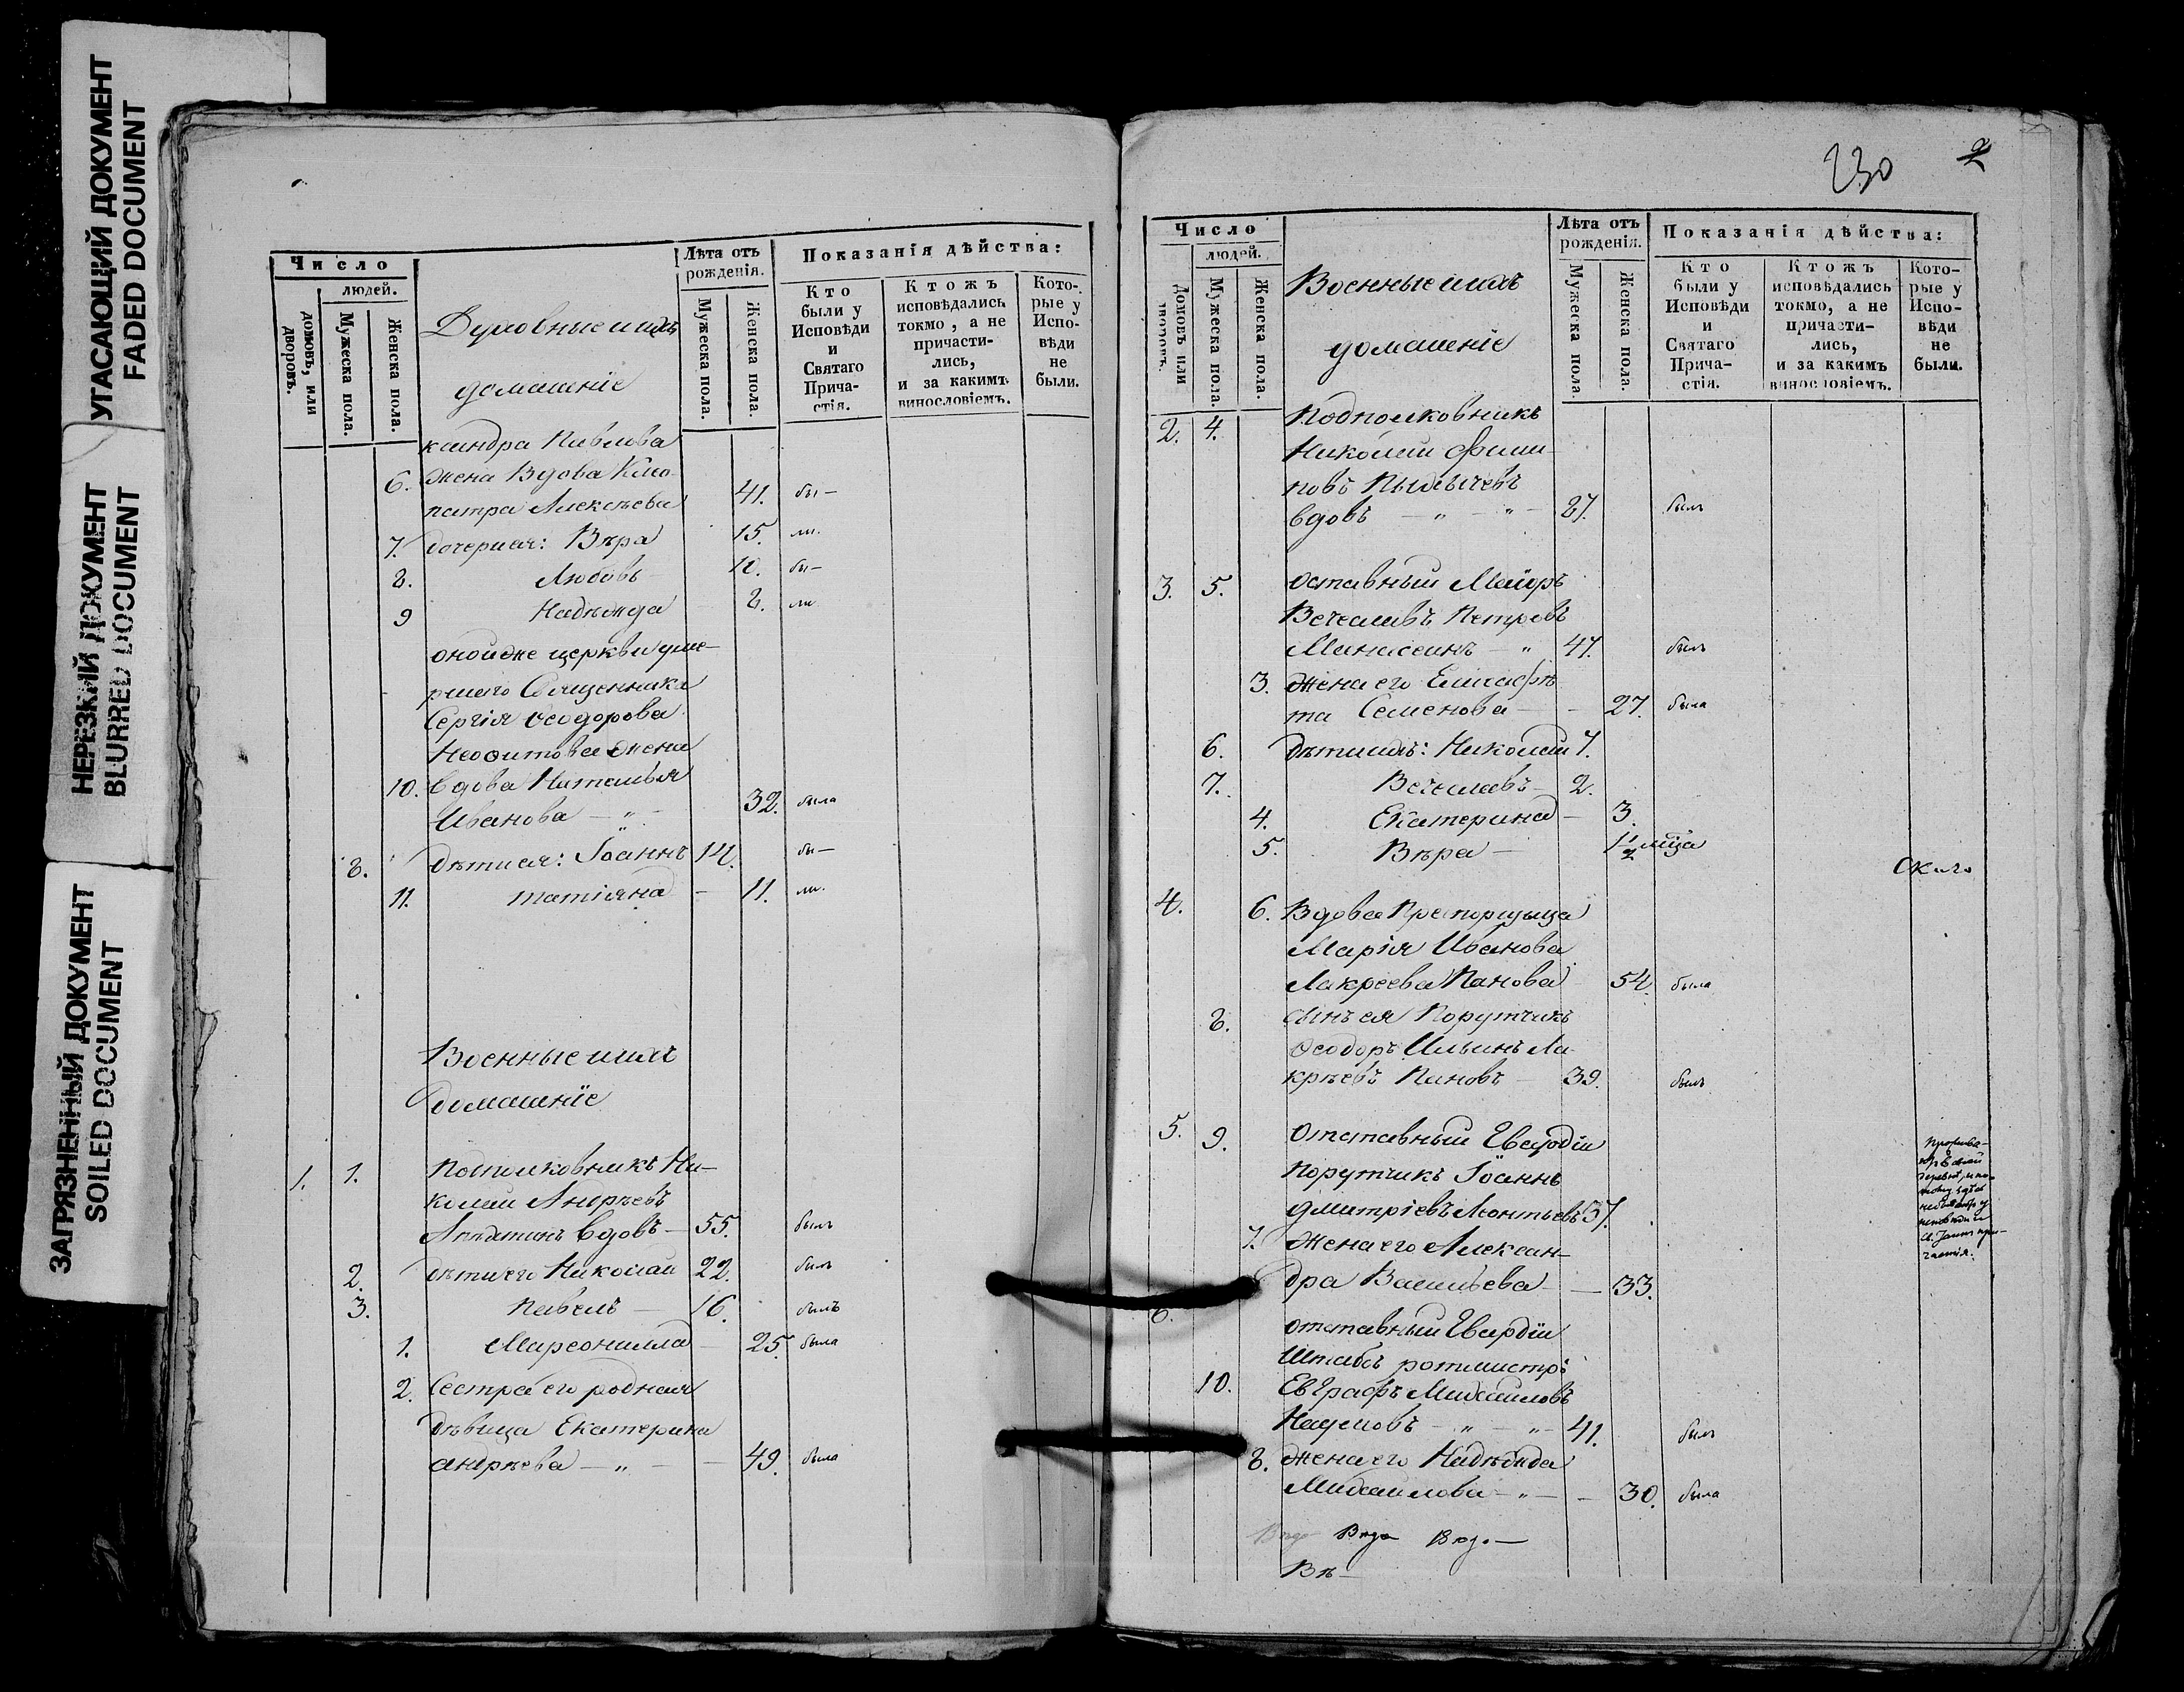 УГАСАЮЩИЙ ДОКУМЕНТ
FADED DOCUMENT
НЕРЕЗКИЙ ДОКУМЕНТ
BLURRED DOCUMENT
ЗАГРЯЗНЕННЫЙ ДОКУМЕНТ
SOILED DOCUMENT
Число
людей.
домовъ, или дворовъ.
Мужеска пола.
Женска пола.
Духовные и ихъ
домашніе
Лѣта отъ рожденія.
Мужеска пола.
Женска пола.
Показанія дѣйства:
Кто были у Исповѣди и Святаго Причастія.
Ктожъ исповѣдались токмо, а не причастились, и за какимъ винословіемъ.
Которые у Исповѣди не были.
ксандра Павлова
6. жена Вдова Клео-
патра Алексѣева 41. бы-
7. дочери ея: Вѣра 15. ли.
8. Любовь 10. бы-
9 Надѣжда 8. ли
оной же церкви уме-
ршаго Священника
Сергія Ѳеодорова
Неофитова жена
10. вдова Наталья
Иванова — „ 32. была
8. дѣти ея: Іоаннъ 14. бы-
11. Татіяна - 11. ли.
Военные и ихъ
Домашніе
1. 1. Подполковникъ Ни-
колай Андрѣевъ
вдовъ - 55. былъ
2. дѣти его Николай 22. былъ
3. Павелъ - 16. былъ
1. Марѳонилла 25. была
2. Сестра его родная
дѣвица Екатерина
Андрѣева — „ — 49. была
230
2
Число
людей.
Домовъ или дворовъ.
Мужеска пола.
Женска пола.
Военные и ихъ
домашніе
Лѣта отъ рожденія.
Мужеска пола.
Женска пола.
Показанія дѣйства:
Кто были у Исповѣди и Святаго Причастія.
Ктожъ исповѣдались токмо, а не причастились, и за какимъ винословіемъ.
Которые у Исповѣди не были.
2. 4. Подполковникъ
Николай Филип-
повъ
вдовъ — „ — „ — былъ
3. 5. оставный Маіоръ
Вечеславъ Петровъ
Манасеинъ — „ 47. былъ
3. жена его Елисафѣ-
та Семенова — 27. была
6. дѣти ихъ: Николай
7. Вечеславъ - 2.
4. Екатерина - 3.
5. Вѣра - 1 1/2 мца
4. 6. Вдова Прапорщица
Марія Иванова
Лакреева Панова 54. была
8. сынъ ея Порутчикъ
Ѳеодоръ Ильинъ Ла-
крѣевъ Пановъ - 39. былъ
5. 9. Отставный Гвардіи
Порутчикъ Іоаннъ
Дмитріевъ Леонтьевъ 37.
7. жена его Алексан-
дра Васильева — 33.
6. отставный Гвардіи
Штабсъ ротмистръ
10. Евграфъ Михайловъ
Наумовъ — „ — „ — 41. былъ
8. жена его Надѣжда
Михайлова — „ — 30. была